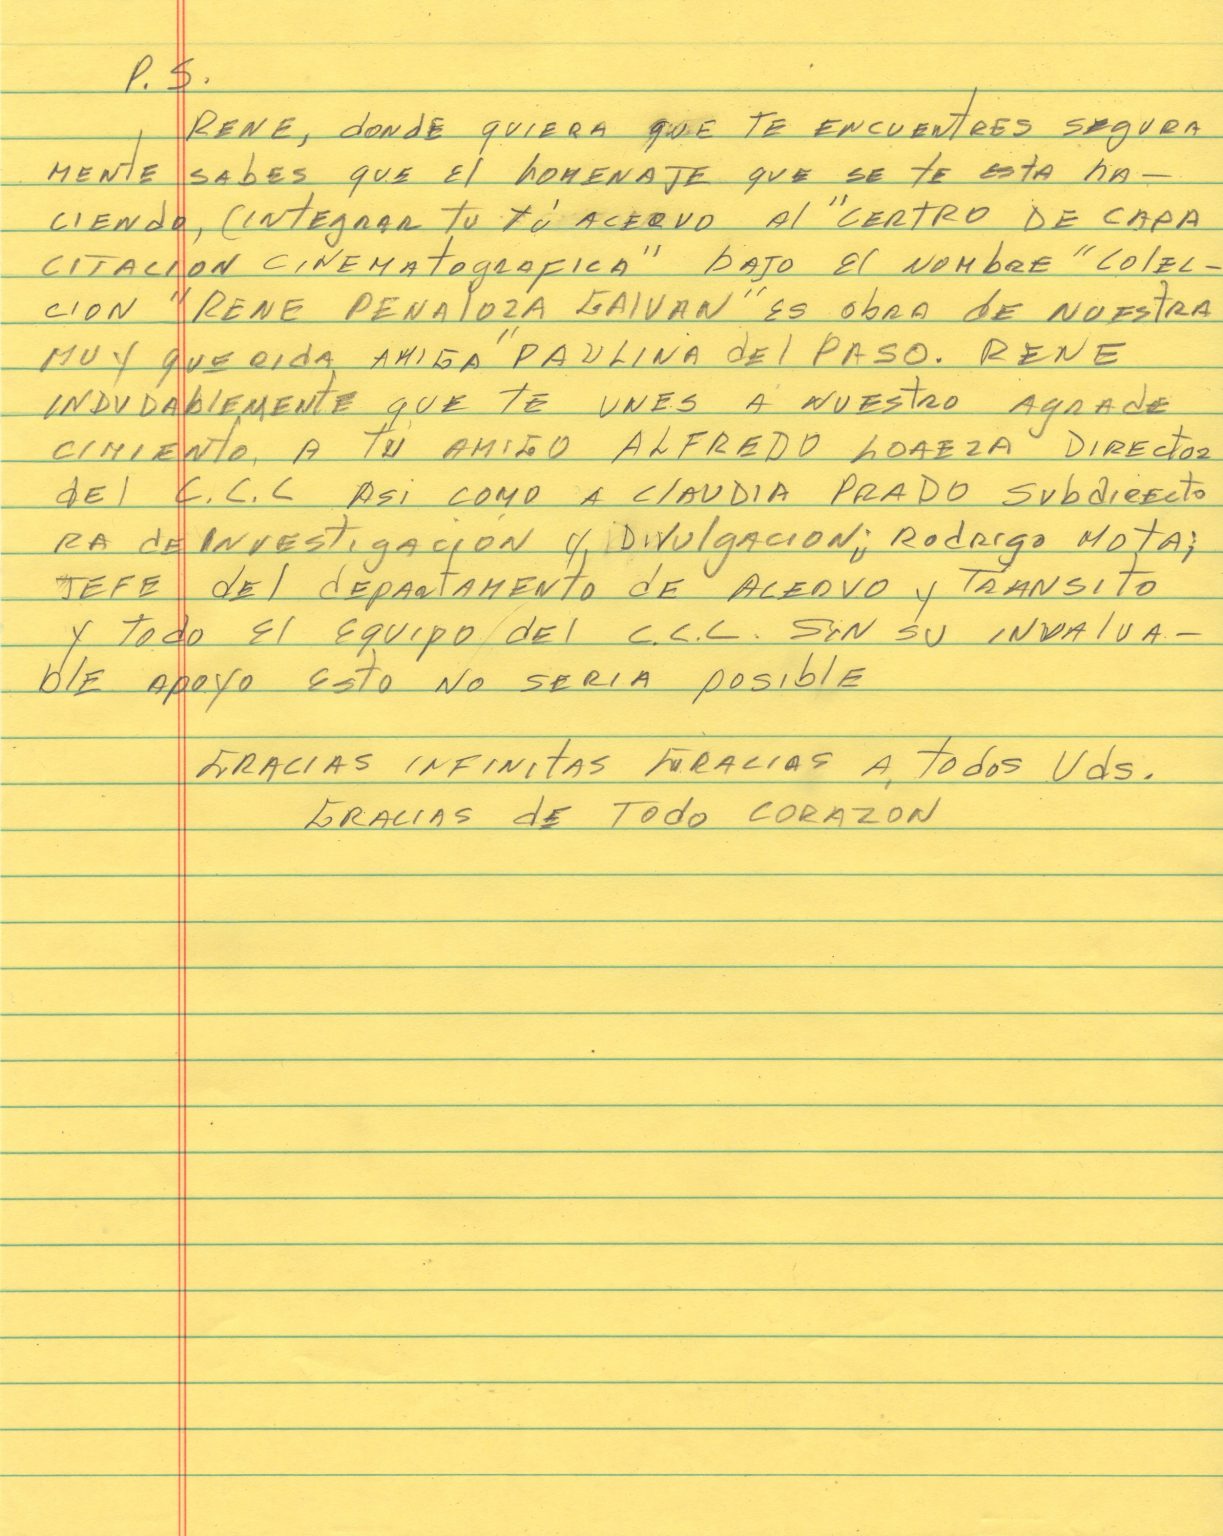 P.S.
RENE, donde quiera que te encuentres segura
mente sabes que el homenaje que se te esta ha-
ciendo, (integrar tu tú acervo al "CERTRO DE CAPA
CITACION CINEMATOGRAFICA" bajo el nombre "COLEC-
CION "RENE PENALOZA GALVAN" es obra de nuestra
muy querida amiga "PAULINA del PASO. RENE
indudablemente que te unes a nuestro agrade
cimiento, a tu amigo ALFREDO LOAEZA Director
del C.C.C asi como a CLAUDIA PRADO Subdirecto
ra de Investigación y Divulgacion; Rodrigo Mota;
Jefe del departamento de Acervo y Transito
y todo el equipo del C.C.C. Sin su invalua-
ble apoyo esto no seria posible
Gracias infinitas Gracias a todos Uds.
Gracias de Todo CORAZON